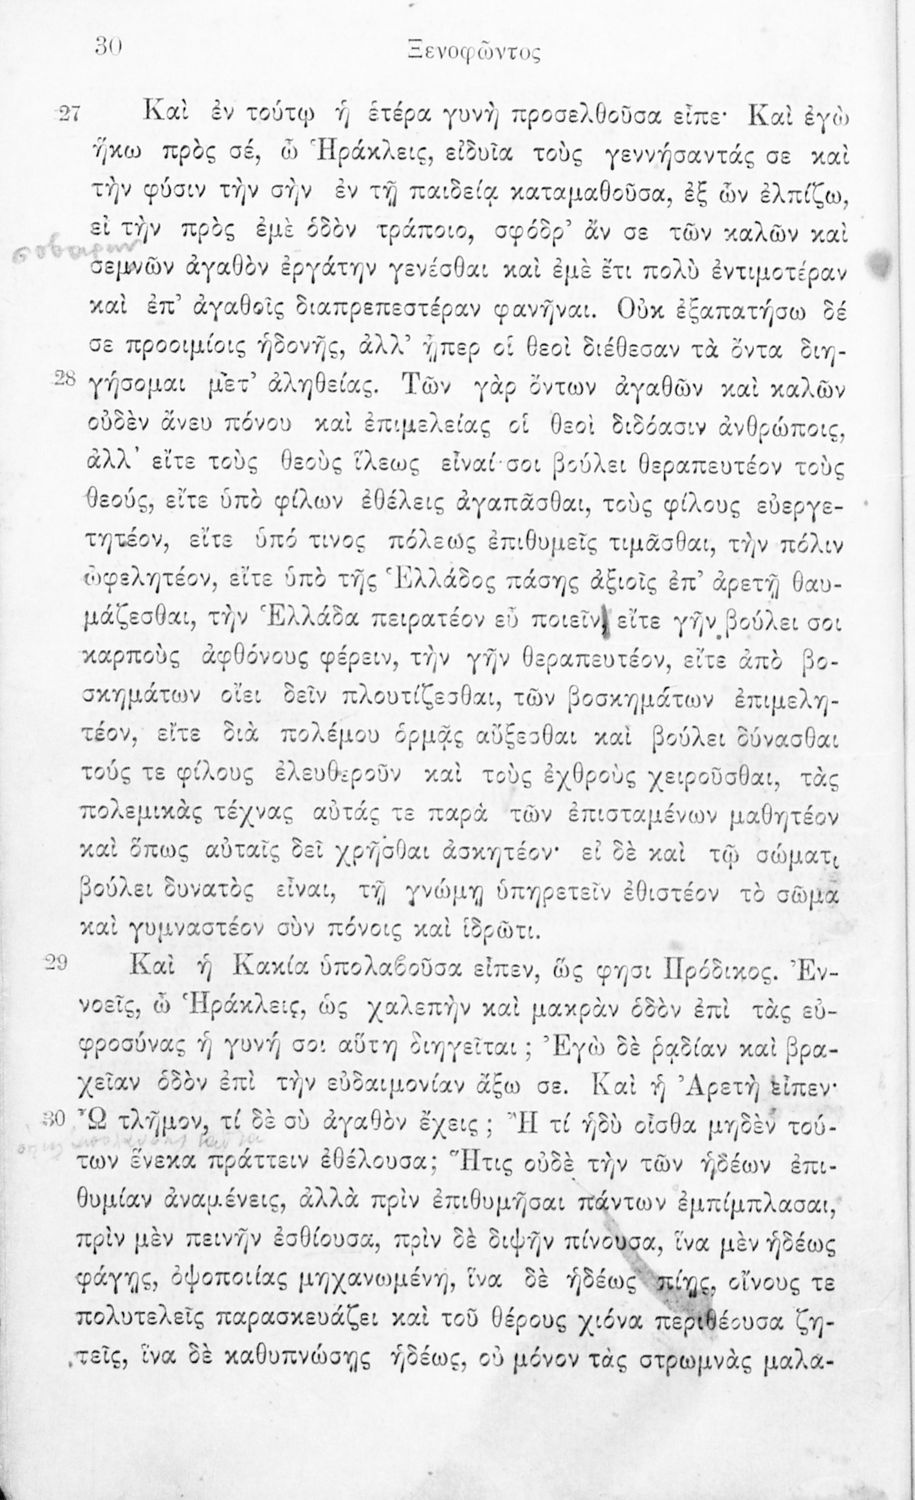 30
Ξενοφῶντος
27 Καὶ ἐν τούτῳ ἡ ἑτέρα γυνὴ προσελθοῦσα εἶπε· Καὶ ἐγὼ
ἥκω πρὸς σέ, ὦ Ἡράκλεις, εἰδυῖα τοὺς γεννήσαντάς σε καὶ
τὴν φύσιν τὴν σὴν ἐν τῇ παιδείᾳ καταμαθοῦσα, ἐξ ὧν ἐλπίζω,
εἰ τὴν πρὸς ἐμὲ ὁδὸν τράποιο, σφόδρ’ ἄν σε τῶν καλῶν καὶ
σεμνῶν ἀγαθὸν ἐργάτην γενέσθαι καὶ ἐμὲ ἔτι πολὺ ἐντιμοτέραν
καὶ ἐπ’ ἀγαθοῖς διαπρεπεστέραν φανῆναι. Οὐκ ἐξαπατήσω δέ
σε προοιμίοις ἡδονῆς, ἀλλ’ ᾗπερ οἱ θεοὶ διέθεσαν τὰ ὄντα διη-
28 γήσομαι μετ’ ἀληθείας. Τῶν γὰρ ὄντων ἀγαθῶν καὶ καλῶν
οὐδὲν ἄνευ πόνου καὶ ἐπιμελείας οἱ θεοὶ διδόασιν ἀνθρώποις,
ἀλλ’ εἴτε τοὺς θεοὺς ἵλεως εἶναί σοι βούλει θεραπευτέον τοὺς
θεούς, εἴτε ὑπὸ φίλων ἐθέλεις ἀγαπᾶσθαι, τοὺς φίλους εὐεργε-
τητέον, εἴτε ὑπό τινος πόλεως ἐπιθυμεῖς τιμᾶσθαι, τὴν πόλιν
ὠφελητέον, εἴτε ὑπὸ τῆς Ἑλλάδος πάσης ἀξιοῖς ἐπ’ ἀρετῇ θαυ-
μάζεσθαι, τὴν Ἑλλάδα πειρατέον εὖ ποιεῖν, εἴτε γῆν βούλει σοι
καρποὺς ἀφθόνους φέρειν, τὴν γῆν θεραπευτέον, εἴτε ἀπὸ βο-
σκημάτων οἴει δεῖν πλουτίζεσθαι, τῶν βοσκημάτων ἐπιμελη-
τέον, εἴτε διὰ πολέμου ὁρμᾷς αὔξεσθαι καὶ βούλει δύνασθαι
τούς τε φίλους ἐλευθεροῦν καὶ τοὺς ἐχθροὺς χειροῦσθαι, τὰς
πολεμικὰς τέχνας αὐτάς τε παρὰ τῶν ἐπισταμένων μαθητέον
καὶ ὅπως αὐταῖς δεῖ χρῆσθαι ἀσκητέον· εἰ δὲ καὶ τῷ σώματι
βούλει δυνατὸς εἶναι, τῇ γνώμῃ ὑπηρετεῖν ἐθιστέον τὸ σῶμα
καὶ γυμναστέον σὺν πόνοις καὶ ἱδρῶτι.
29 Καὶ ἡ Κακία ὑπολαβοῦσα εἶπεν, ὥς φησι Πρόδικος. Ἐν-
νοεῖς, ὦ Ἡράκλεις, ὡς χαλεπὴν καὶ μακρὰν ὁδὸν ἐπὶ τὰς εὐ-
φροσύνας ἡ γυνή σοι αὕτη διηγεῖται ; Ἐγὼ δὲ ῥᾳδίαν καὶ βρα-
χεῖαν ὁδὸν ἐπὶ τὴν εὐδαιμονίαν ἄξω σε. Καὶ ἡ Ἀρετὴ εἶπεν·
30 Ὦ τλῆμον, τί δὲ σὺ ἀγαθὸν ἔχεις ; Ἢ τί ἡδὺ οἶσθα μηδὲν τού-
των ἕνεκα πράττειν ἐθέλουσα; Ἥτις οὐδὲ τὴν τῶν ἡδέων ἐπι-
θυμίαν ἀναμένεις, ἀλλὰ πρὶν ἐπιθυμῆσαι πάντων ἐμπίμπλασαι,
πρὶν μὲν πεινῆν ἐσθίουσα, πρὶν δὲ διψῆν πίνουσα, ἵνα μὲν ἡδέως
φάγῃς, ὀψοποιίας μηχανωμένη, ἵνα δὲ ἡδέως πίῃς, οἴνους τε
πολυτελεῖς παρασκευάζει καὶ τοῦ θέρους χιόνα περιθέουσα ζη-
τεῖς, ἵνα δὲ καθυπνώσῃς ἡδέως, οὐ μόνον τὰς στρωμνὰς μαλα-